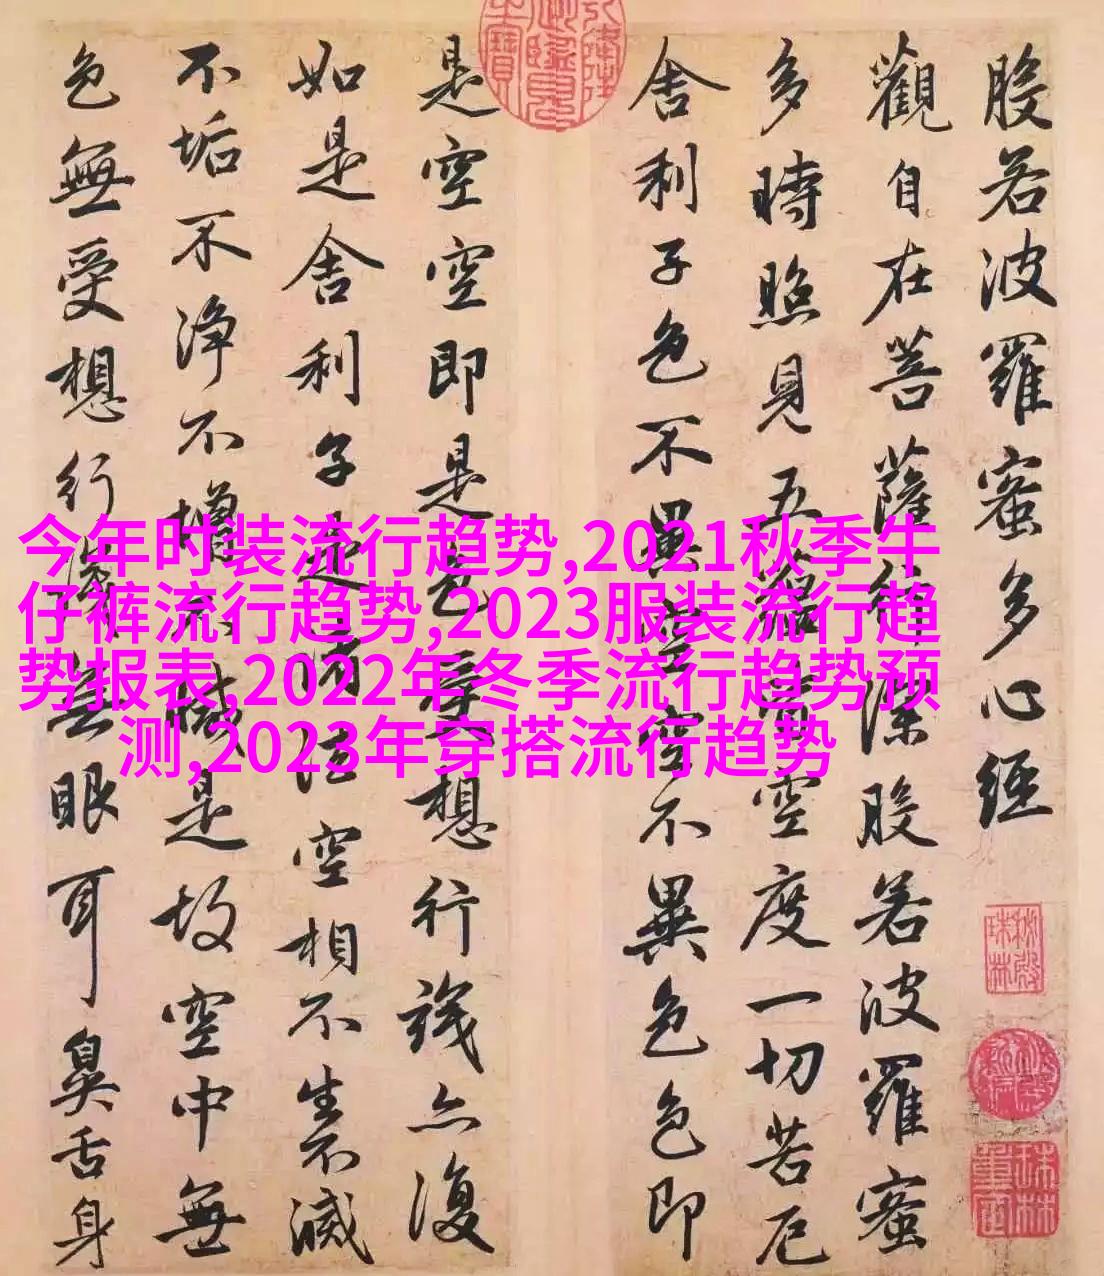 般若波羅蜜多心經
觀自在菩薩行深般若波羅蜜
多時照見五蘊皆空度一切苦厄
舍利子色不異空空不異色色即
是空空即是色受想行識亦復
如是舍利子是諸法空相不生不滅
不垢不淨不增不減是故空中無
色無受想行識無眼耳鼻舌身
今年时装流行趋势,2021秋季牛
仔裤流行趋势,2023服装流行趋
势报表,2022年冬季流行趋势预
测,2023年穿搭流行趋势
秘殿
珠林